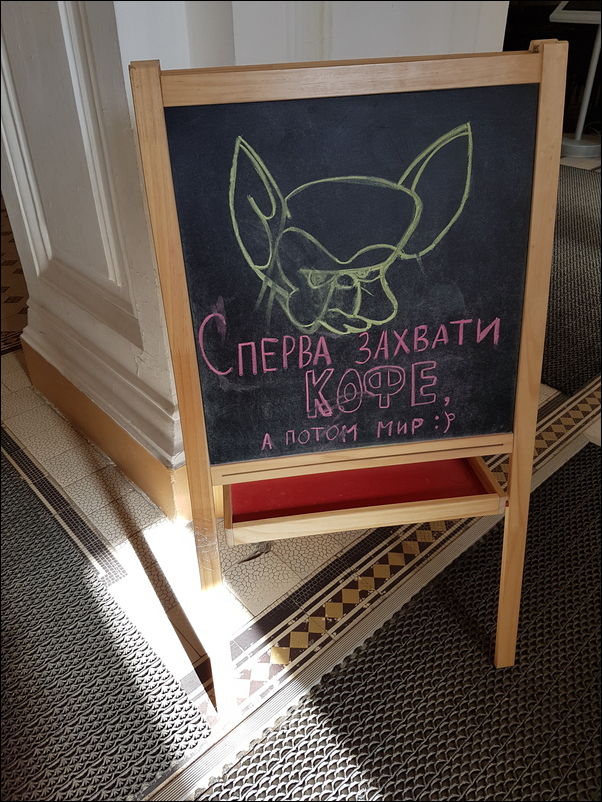 Сперва захвати
кофе,
а потом мир :)